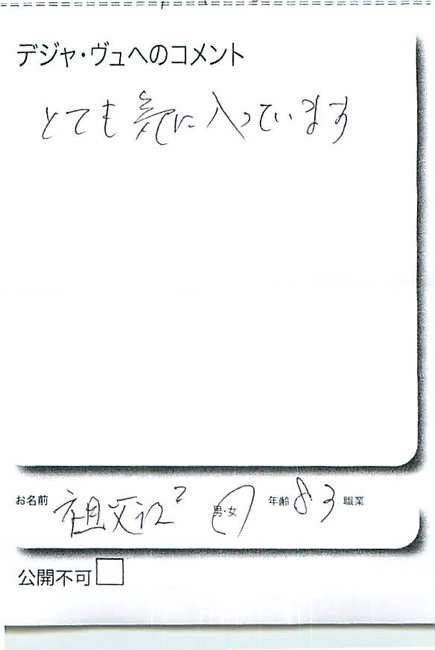 デジャ・ヴュへのコメント
とても気に入っています
お名前 男・女 年齢 83 職業
公開不可